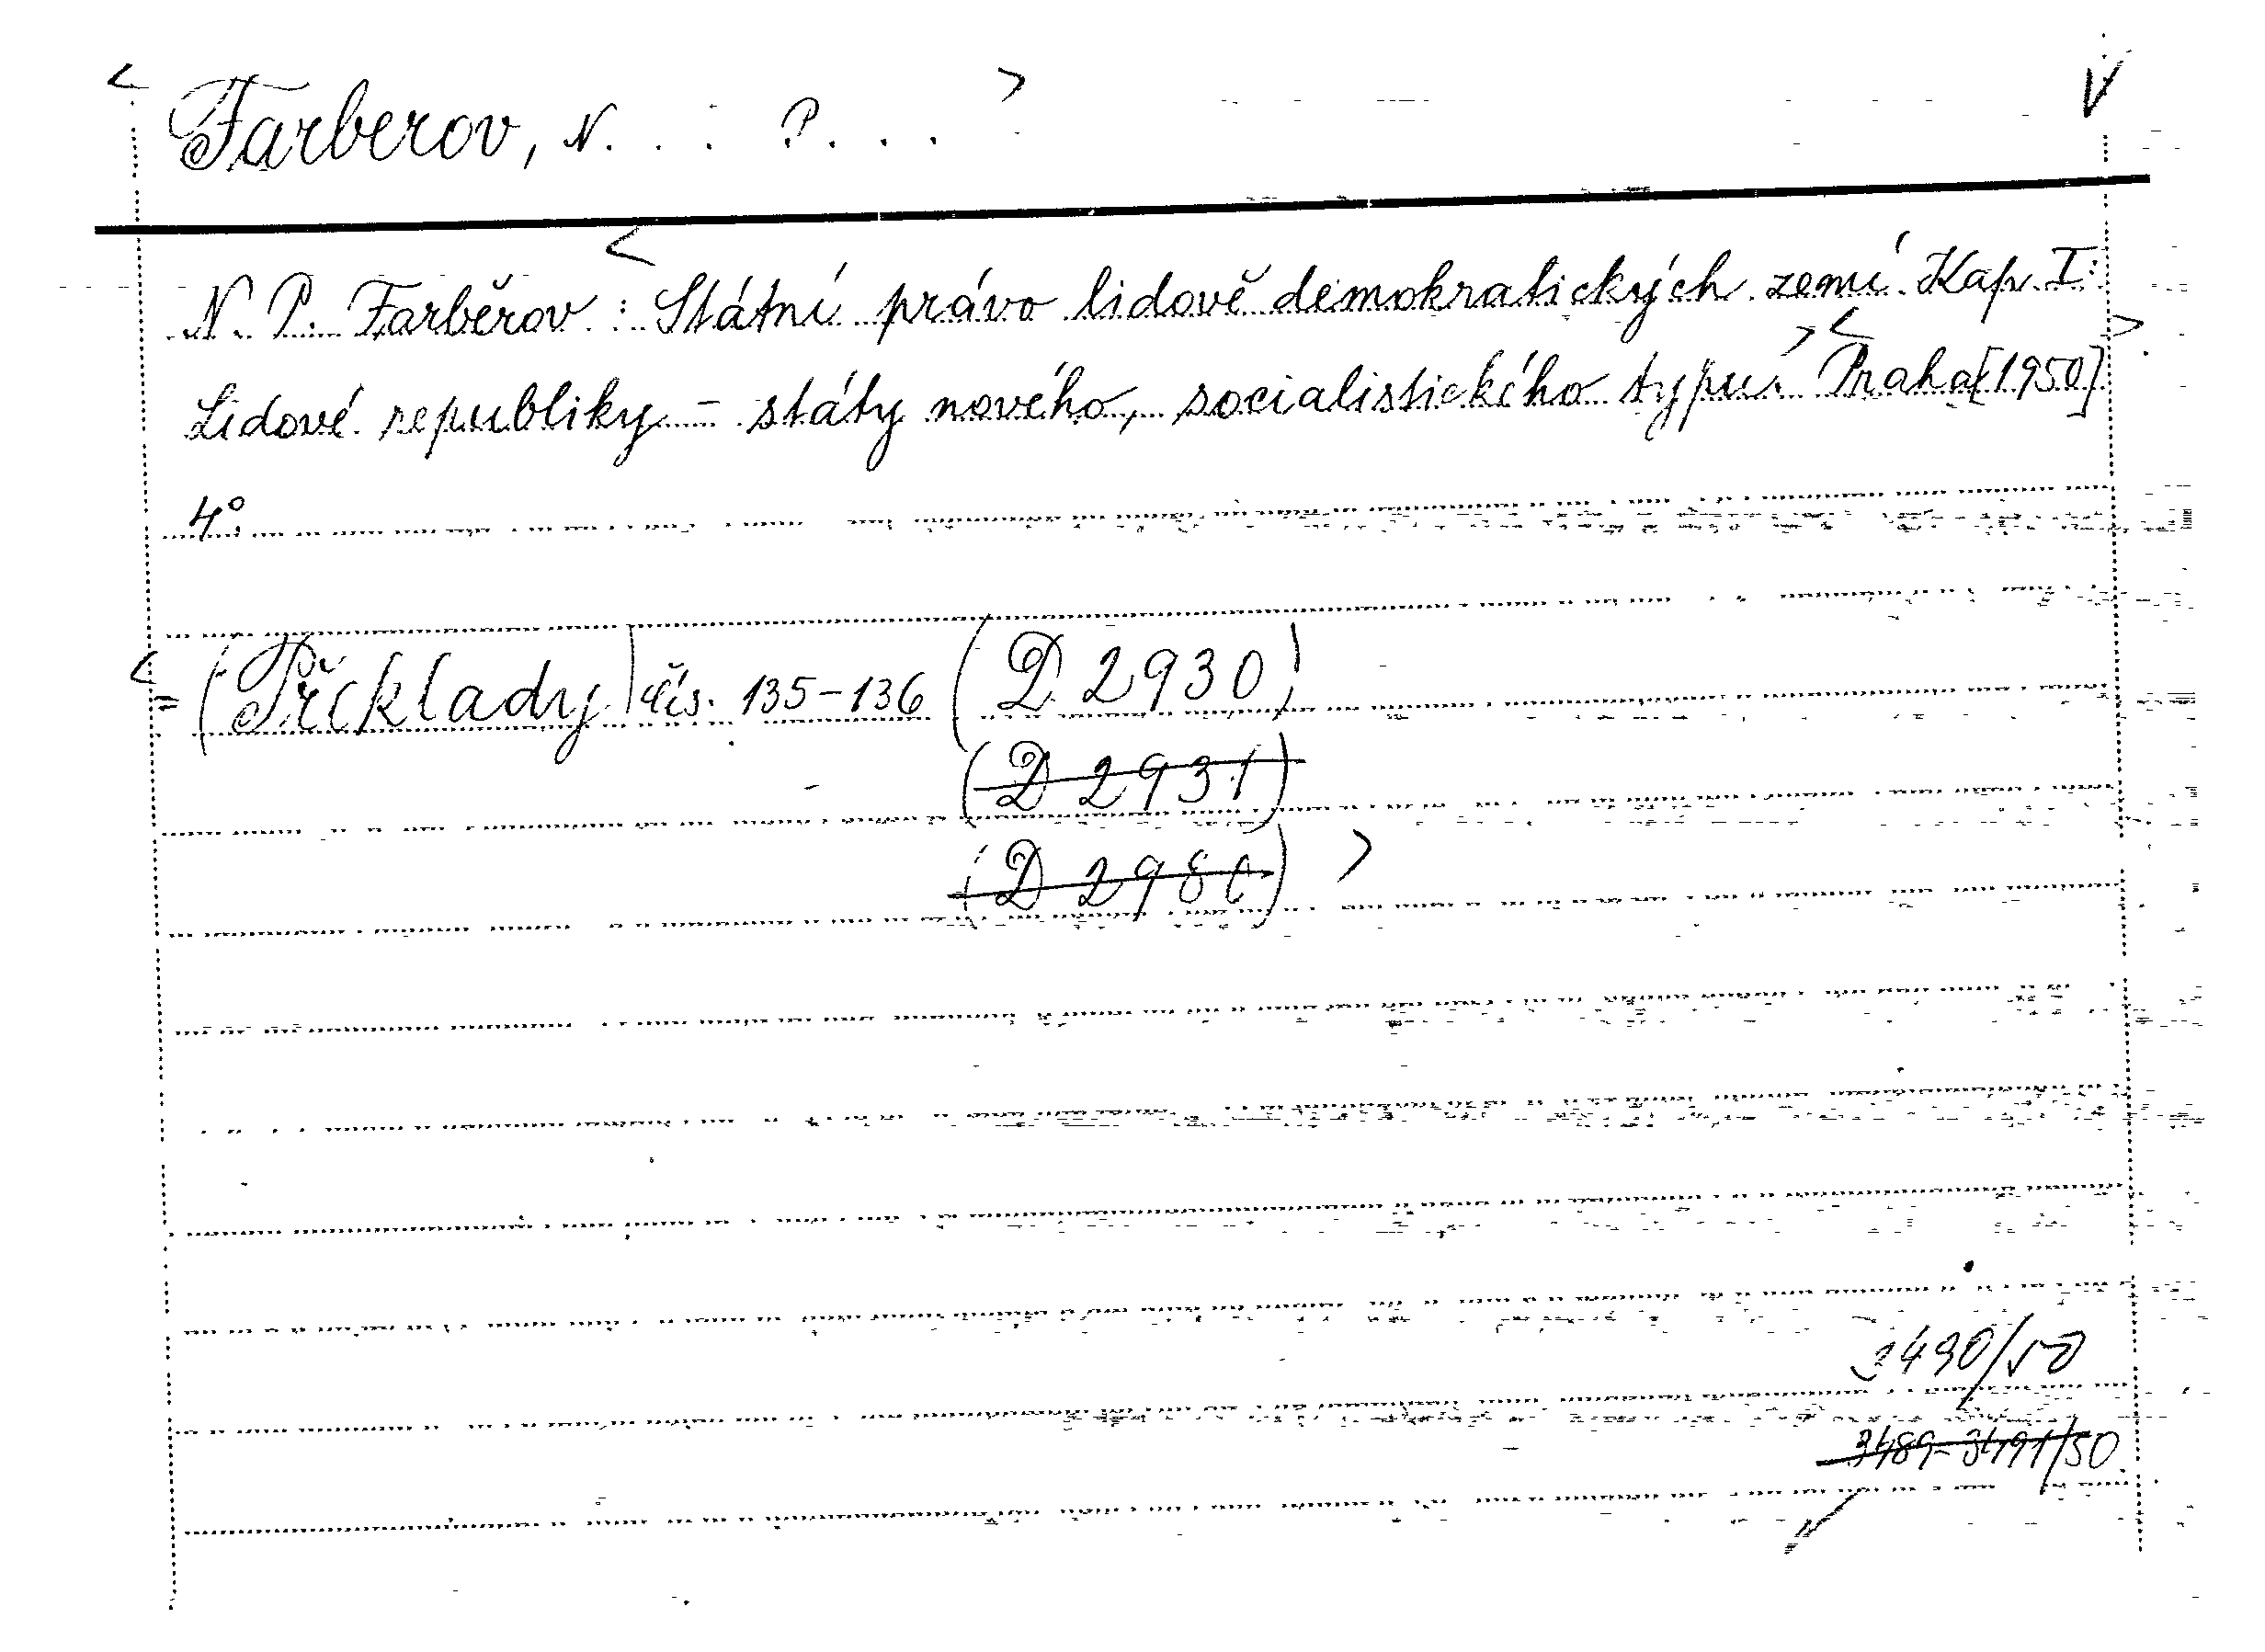 < Farberov, N. . . P. . . . > V
N. P. Farběrov : <Státní právo lidově demokratických zemí. Kap. I:
Lidové republiky - státy nového, socialistického typu.> <Praha [1950]>
4°.
<= (Příklady) čís. 135-136 (D 2930)
(D 2931)
(D 2980) >
3490/50
3489-3491/50